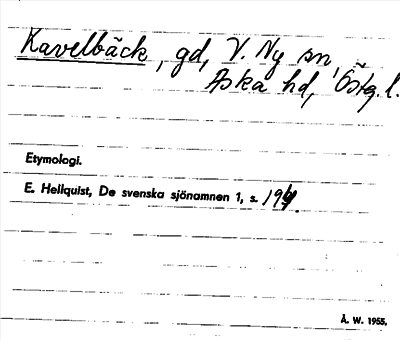 Kavelbäck, gd, V. Ny sn,
Aska hd, Östg. l.
Etymologi.
E. Hellquist, De svenska sjönamnen 1, s.
Å. W. 1955.